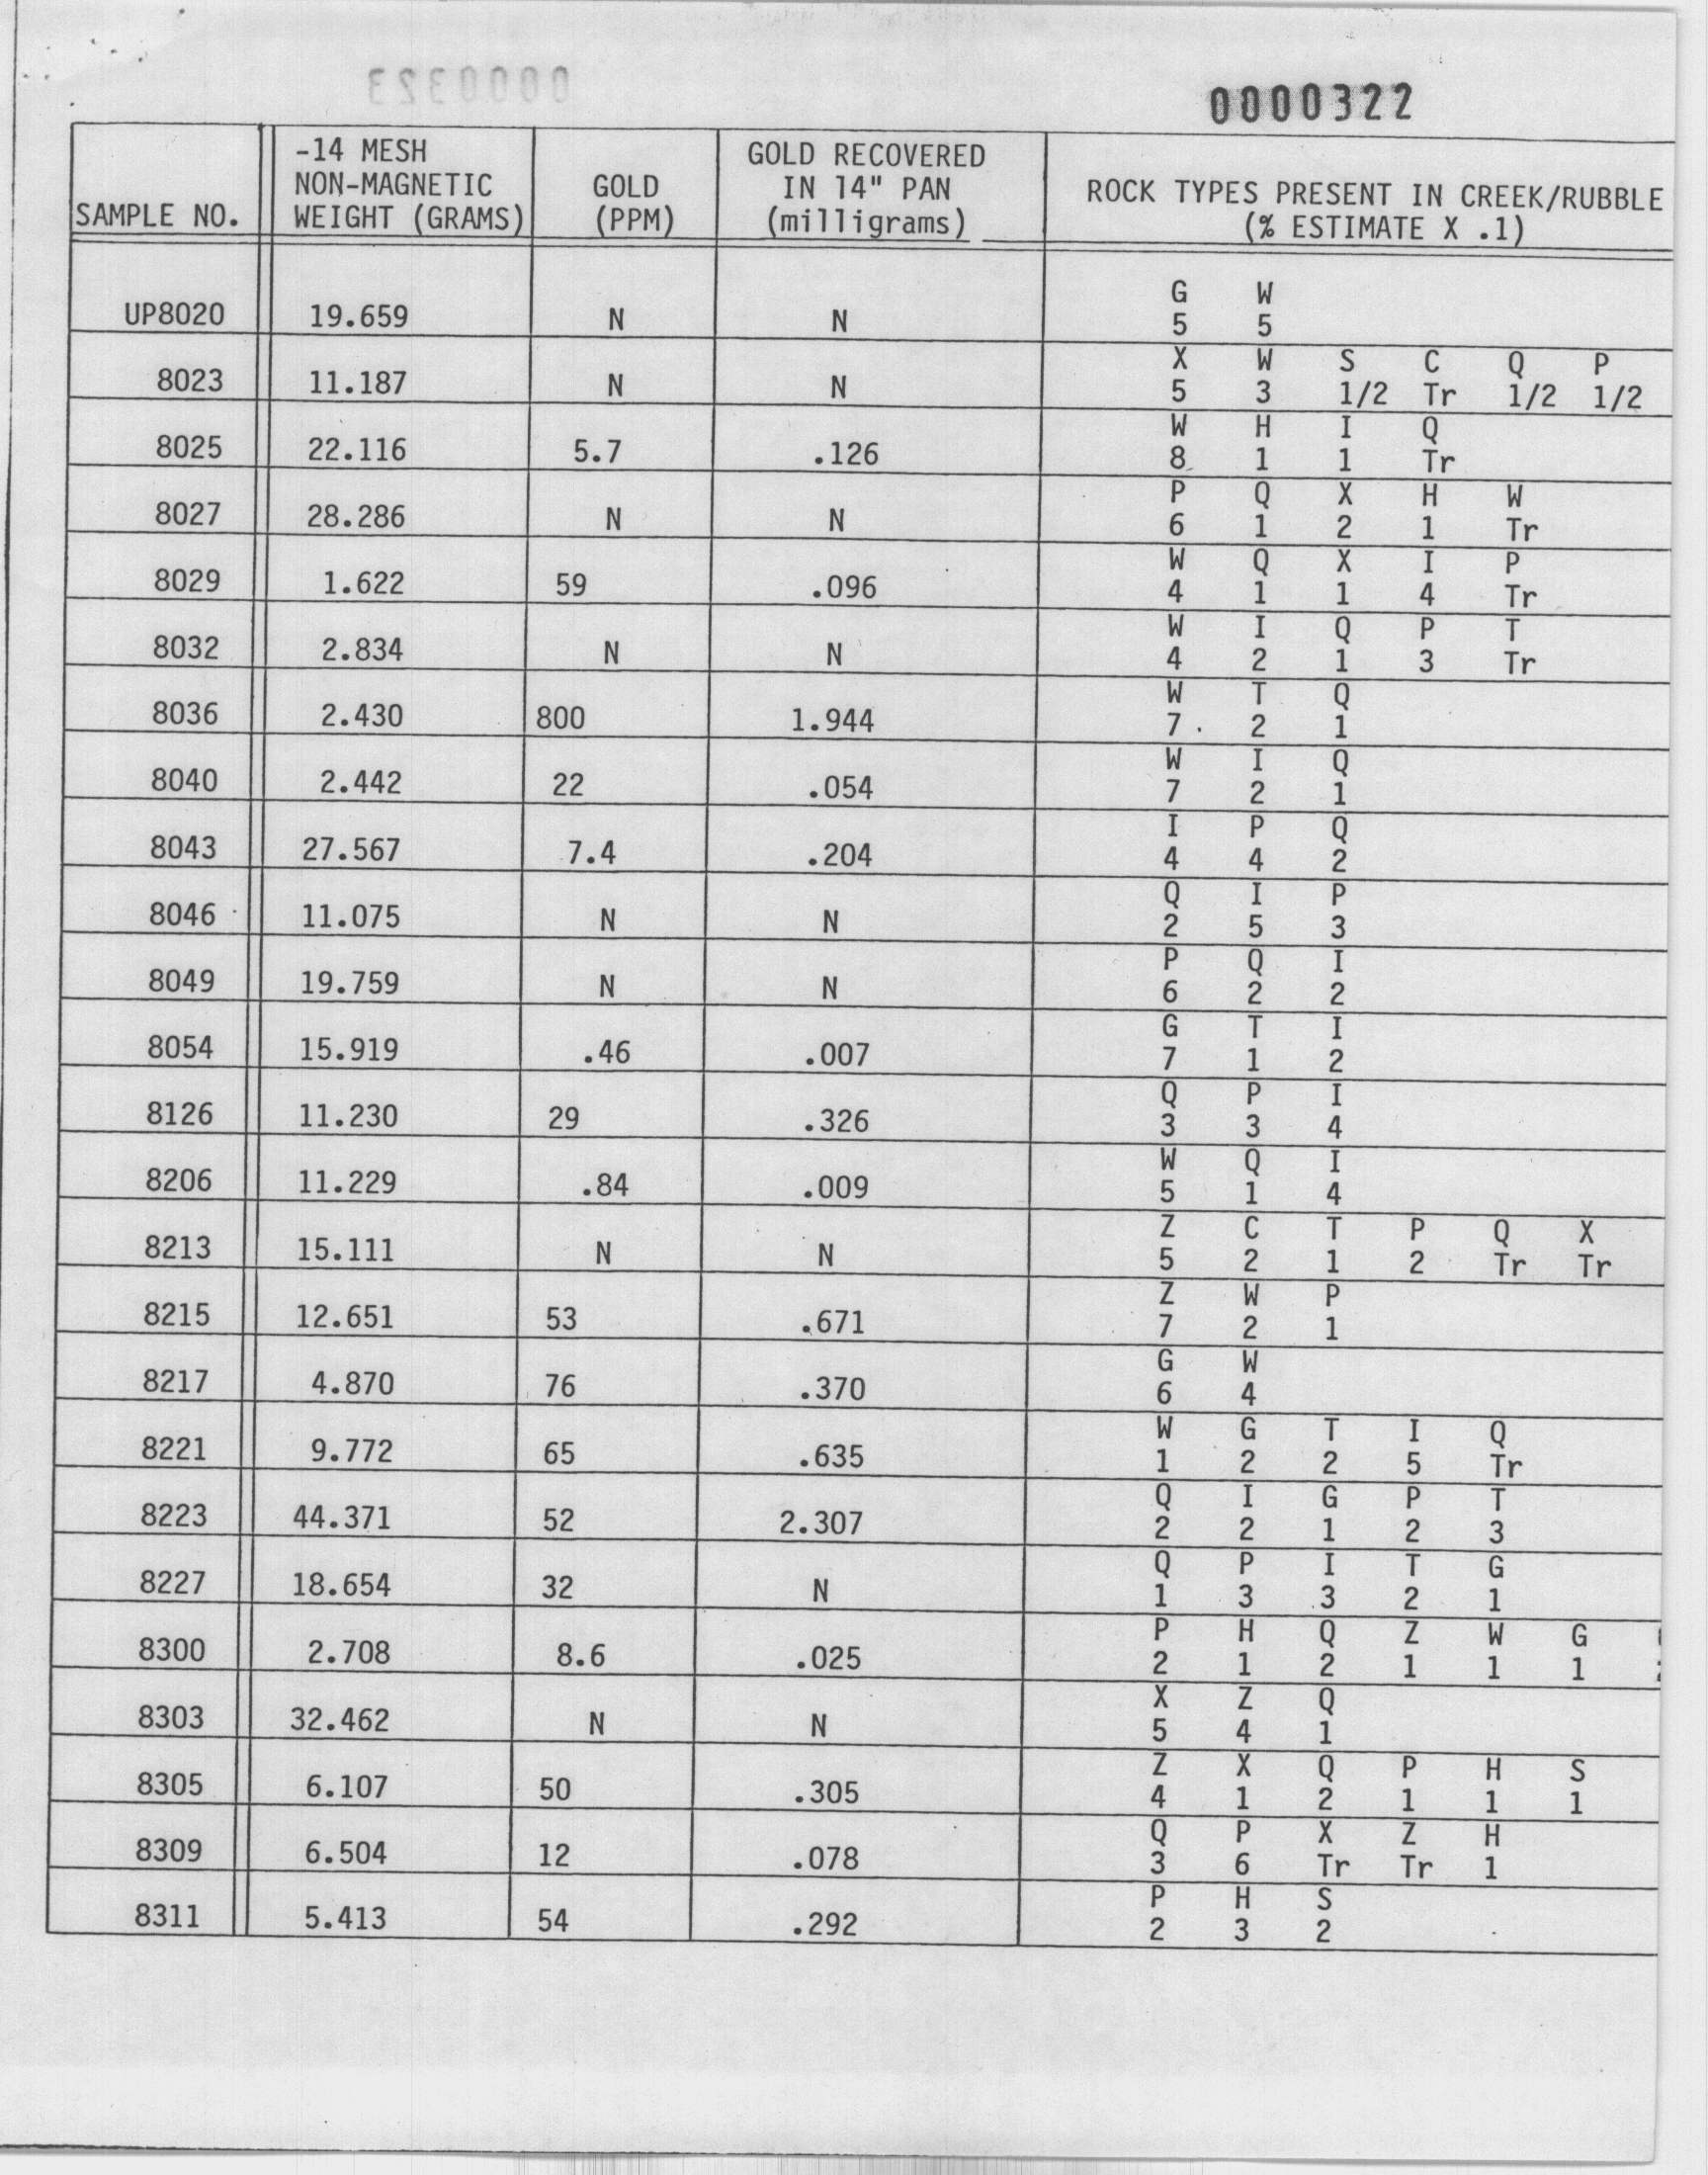 0000323
0000322
SAMPLE NO. -14 MESH NON-MAGNETIC WEIGHT (GRAMS) GOLD (PPM) GOLD RECOVERED IN 14" PAN (milligrams) ROCK TYPES PRESENT IN CREEK/RUBBLE (% ESTIMATE X .1)
G W
UP8020 19.659 N N 5 5
X W S C Q P
8023 11.187 N N 5 3 1/2 Tr 1/2 1/2
W H I Q
8025 22.116 5.7 .126 8 1 1 Tr
P Q X H W
8027 28.286 N N 6 1 2 1 Tr
W Q X I P
8029 1.622 59 .096 4 1 1 4 Tr
W I Q P T
8032 2.834 N N 4 2 1 3 Tr
W T Q
8036 2.430 800 1.944 7 2 1
W I Q
8040 2.442 22 .054 7 2 1
I P Q
8043 27.567 7.4 .204 4 4 2
Q I P
8046 11.075 N N 2 5 3
P Q I
8049 19.759 N N 6 2 2
G T I
8054 15.919 .46 .007 7 1 2
Q P I
8126 11.230 29 .326 3 3 4
W Q I
8206 11.229 .84 .009 5 1 4
Z C T P Q X
8213 15.111 N N 5 2 1 2 Tr Tr
Z W P
8215 12.651 53 .671 7 2 1
G W
8217 4.870 76 .370 6 4
W G T I Q
8221 9.772 65 .635 1 2 2 5 Tr
Q I G P T
8223 44.371 52 2.307 2 2 1 2 3
Q P I T G
8227 18.654 32 N 1 3 3 2 1
P H Q Z W G
8300 2.708 8.6 .025 2 1 2 1 1 1
X Z Q
8303 32.462 N N 5 4 1
Z X Q P H S
8305 6.107 50 .305 4 1 2 1 1 1
Q P X Z H
8309 6.504 12 .078 3 6 Tr Tr 1
P H S
8311 5.413 54 .292 2 3 2